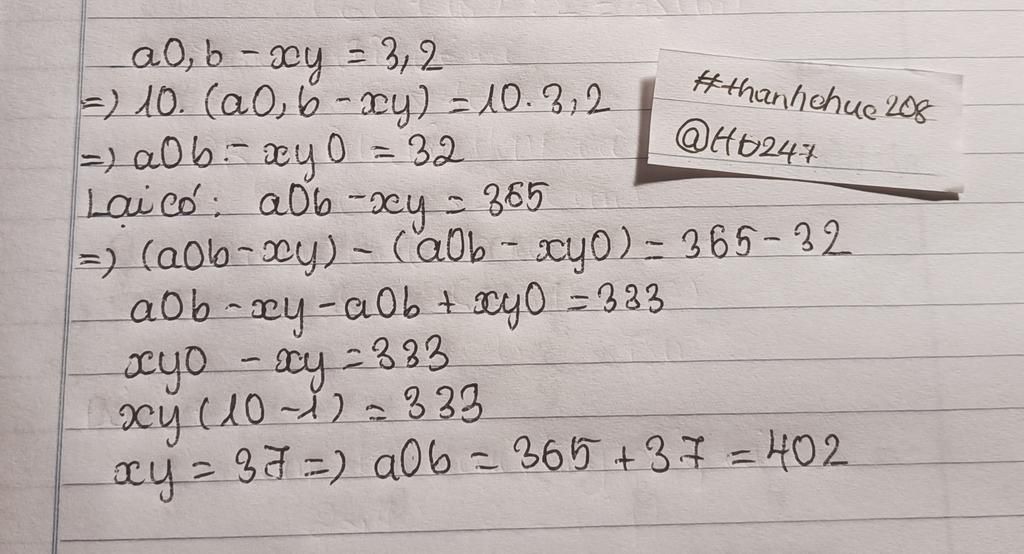 a0,b - xy = 3,2
=) 10. (a0,b - xy) = 10. 3,2
=) a0b - xy0 = 32
Lại có: a0b - xy = 365
=) (a0b - xy) - (a0b - xy0) = 365 - 32
a0b - xy - a0b + xy0 = 333
xy0 - xy = 333
xy (10 - 1) = 333
xy = 37 =) a0b = 365 + 37 = 402
#thanhchuc208
@Hb247